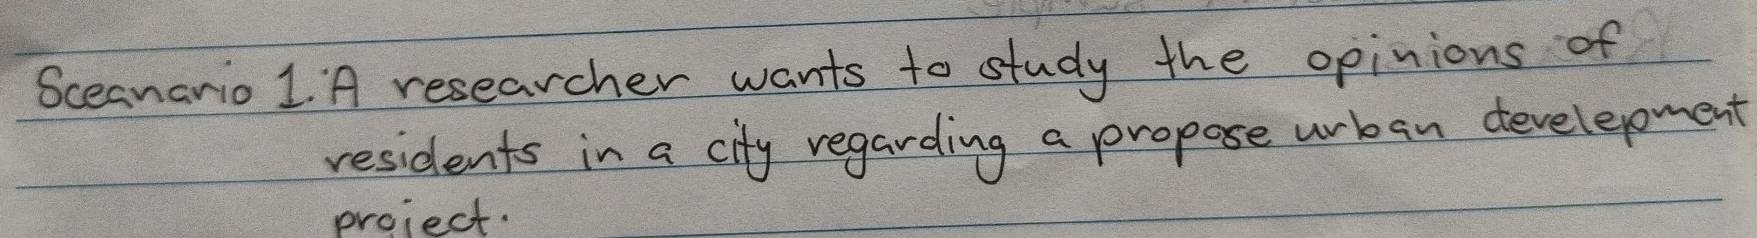 Sceanario 1. A researcher wants to study the opinions of
residents in a city regarding a propose urban develepment
project.